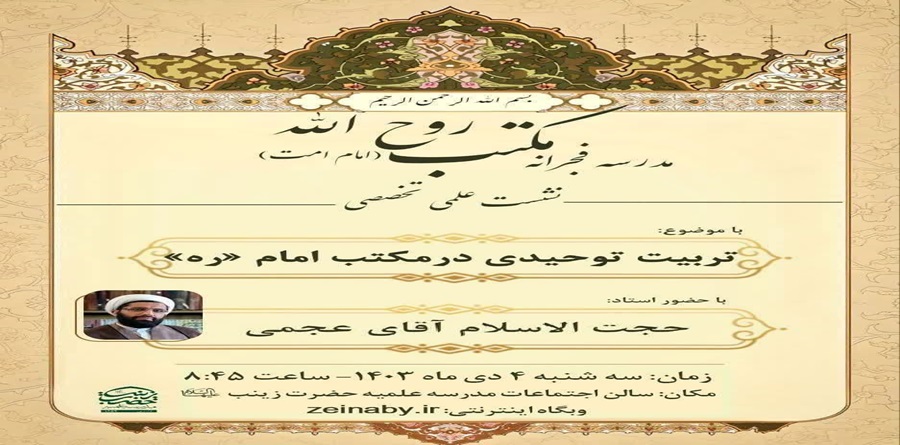 بسم الله الرحمن الرحیم
مدرسه فجرانه مکتب روح الله (امام امت)
نشست علمی تخصصی
با موضوع:
تربیت توحیدی در مکتب امام «ره»
با حضور استاد:
حجت الاسلام آقای عجمی
زمان: سه شنبه ۴ دی ماه ۱۴۰۳- ساعت ۸:۴۵
مکان: سالن اجتماعات مدرسه علمیه حضرت زینب
وبگاه اینترنتی: zeinaby.ir